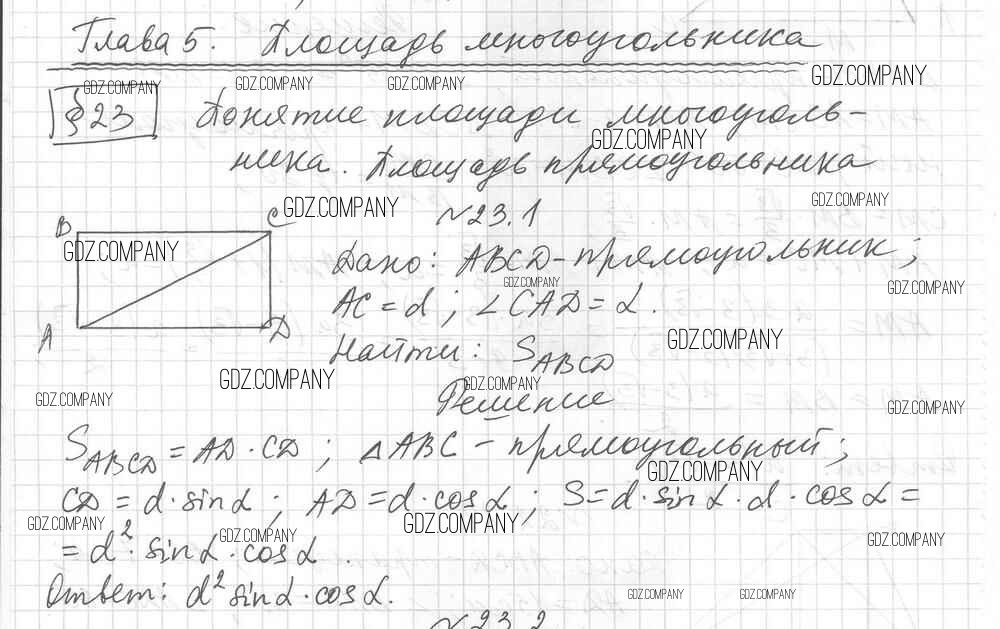 Глава 5. Площадь многоугольника
GDZ.COMPANY GDZ.COMPANY GDZ.COMPANY GDZ.COMPANY
§ 23 Понятие площади многоуголь-
GDZ.COMPANY
ника. Площадь прямоугольника
GDZ.COMPANY
B C GDZ.COMPANY №23.1
GDZ.COMPANY
Дано: ABCD - прямоугольник;
GDZ.COMPANY GDZ.COMPANY
AC = d; ∠CAD = α.
A D
GDZ.COMPANY
Найти: S_ABCD
GDZ.COMPANY GDZ.COMPANY
GDZ.COMPANY Решение GDZ.COMPANY
S_ABCD = AD · CD; △ABC - прямоугольный;
GDZ.COMPANY
CD = d · sin α; AD = d · cos α; S = d · sin α · d · cos α =
GDZ.COMPANY GDZ.COMPANY GDZ.COMPANY GDZ.COMPANY
= d² · sin α · cos α.
Ответ: d² sin α · cos α.
GDZ.COMPANY GDZ.COMPANY
№23.2